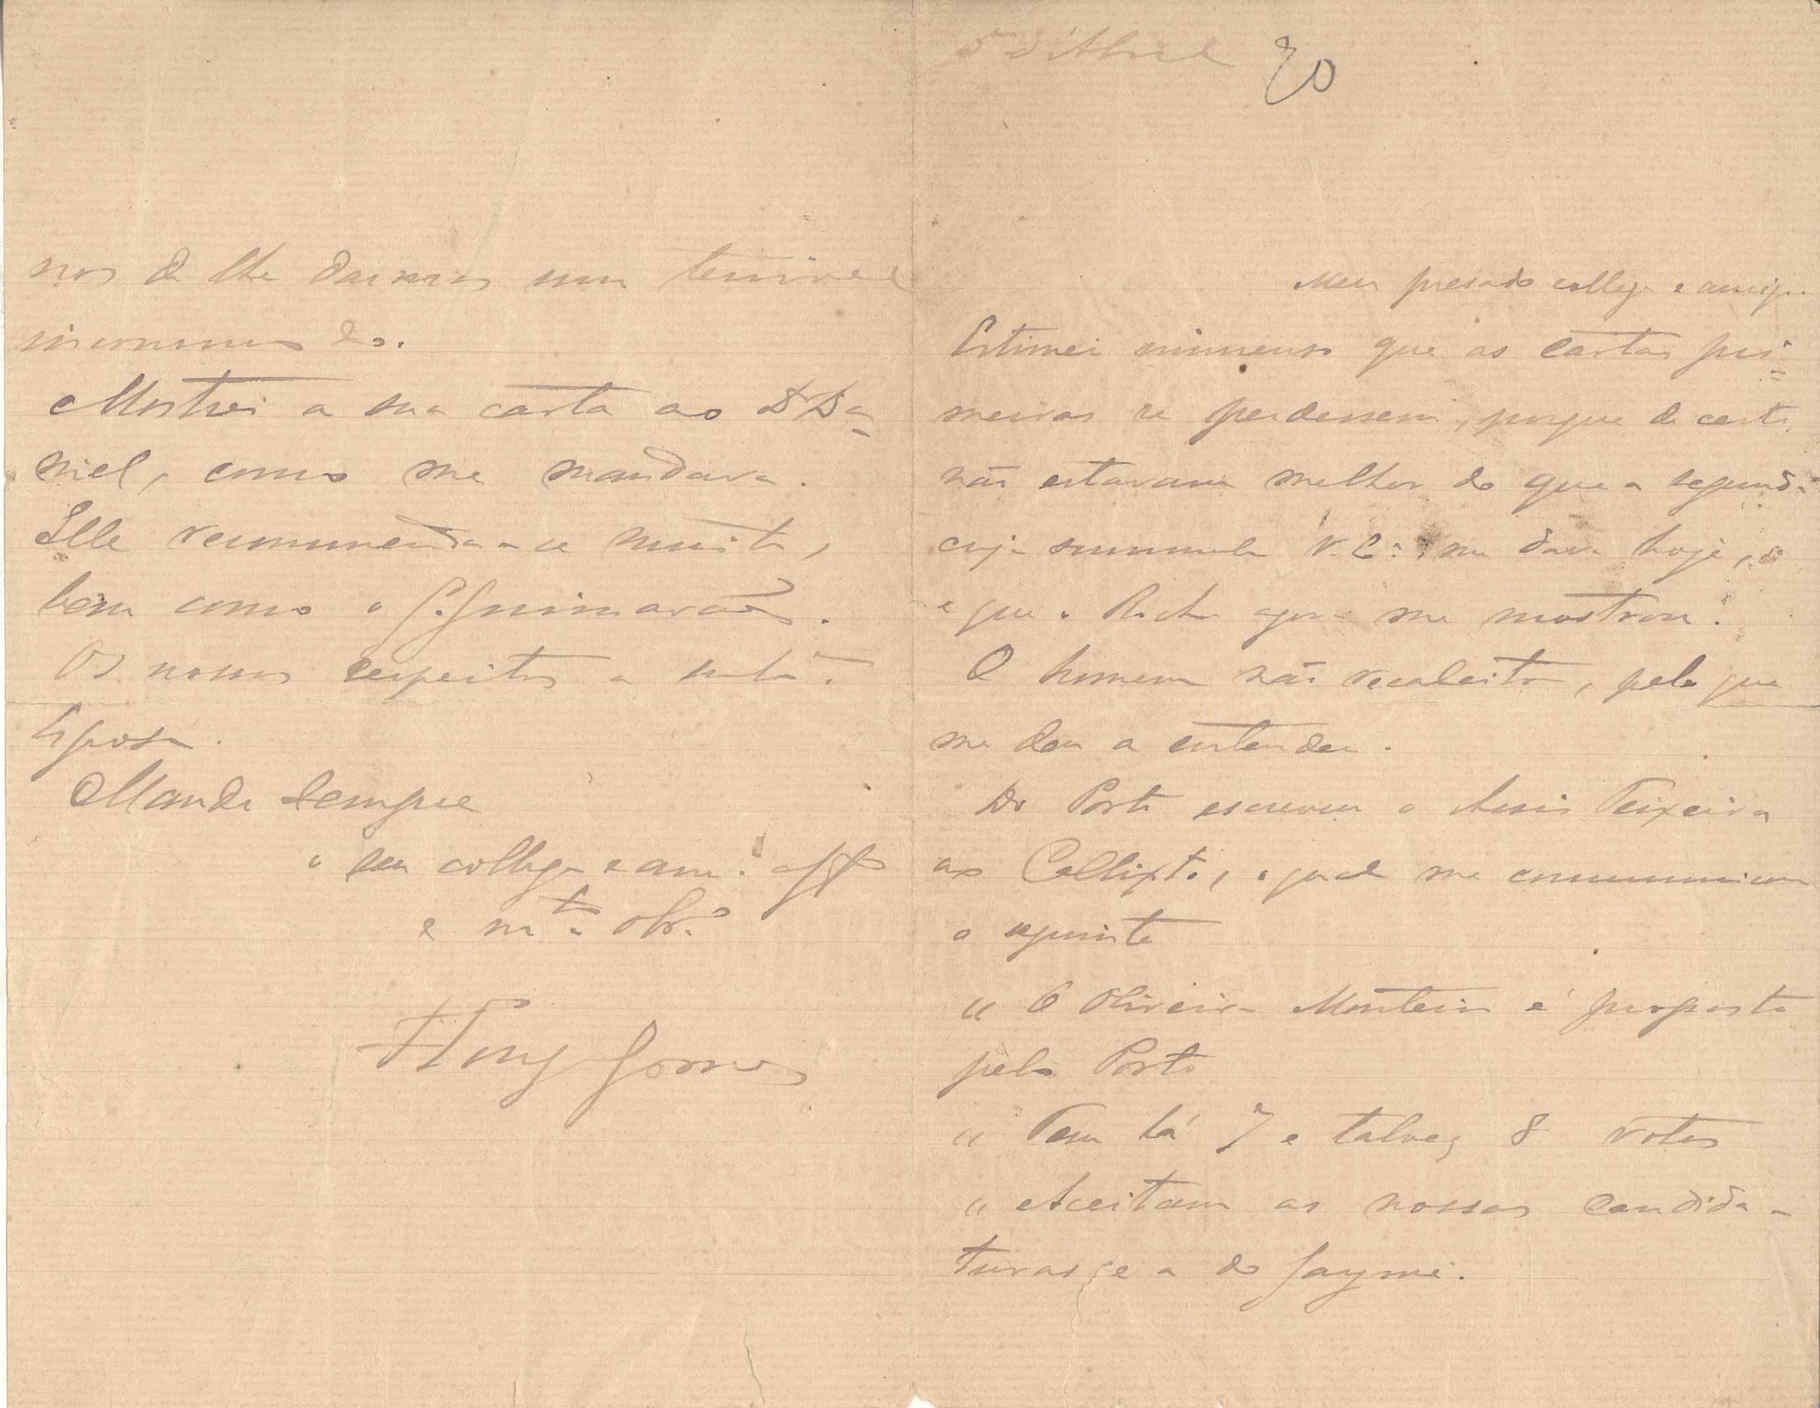 20
Meu presado collega e amigo
Estimei immenso que as cartas pri-
meiras se perdessem, porque de certo
não estavam melhor do que a segunda
cuja summula V. Ex.ª me dava hoje,
e que o Rocha agora me mostrou.
O homem não recalcitra, pelo que
me deu a entender.
Do Porto escreveu o Assis Teixeira
ao Callixto, o qual me communicou
o seguinte
" O Oliveira Monteiro é proposto
pelo Porto
" Tem lá 7 e talvez 8 votos
" Aceitam as nossas candida-
turas, e a do Jayme.
nos de lhe darmos um
incommodo.
Mostrei a sua carta ao Dr Da-
niel, como me mandava.
Elle recommenda-se muito,
bem como o Guimarães.
Os nossos respeitos a sua
Esposa.
Mande sempre
o seu collega e am.º
e m.to obr.º
Gomes